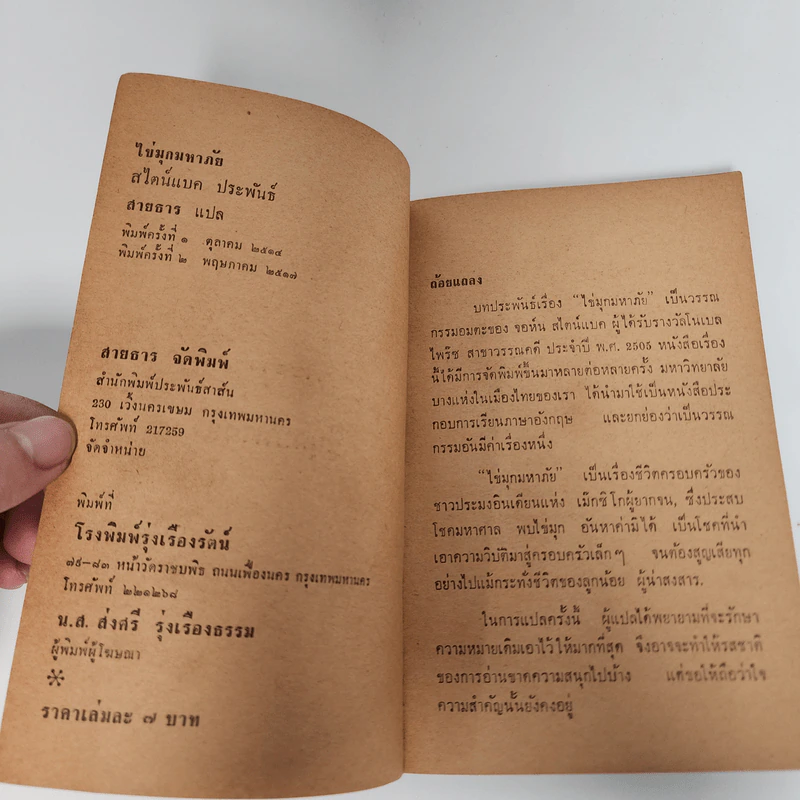 ไข่มุกมหาภัย
สไตน์แบค ประพันธ์
สายธาร แปล
พิมพ์ครั้งที่ ๑ ตุลาคม ๒๕๑๔
พิมพ์ครั้งที่ ๒ พฤษภาคม ๒๕๑๗
สายธาร จัดพิมพ์
สำนักพิมพ์ประพันธ์สาส์น
230 เวิ้งนครเขษม กรุงเทพมหานคร
โทรศัพท์ 217259
จัดจำหน่าย
พิมพ์ที่
โรงพิมพ์รุ่งเรืองรัตน์
๗๙–๘๓ หน้าวัดราชบพิธ ถนนเฟื่องนคร กรุงเทพมหานคร
โทรศัพท์ ๒๒๑๒๖๘
น.ส. ส่งศรี รุ่งเรืองธรรม
ผู้พิมพ์ผู้โฆษณา
*
ราคาเล่มละ ๗ บาท
ถ้อยแถลง
บทประพันธ์เรื่อง “ไข่มุกมหาภัย” เป็นวรรณ
กรรมอมตะของ จอห์น สไตน์แบค ผู้ได้รับรางวัลโนเบล
ไพร๊ซ สาขาวรรณคดี ประจำปี พ.ศ. 2505 หนังสือเรื่อง
นี้ได้มีการจัดพิมพ์ขึ้นมาหลายต่อหลายครั้ง มหาวิทยาลัย
บางแห่งในเมืองไทยของเรา ได้นำมาใช้เป็นหนังสือประ
กอบการเรียนภาษาอังกฤษ และยกย่องว่าเป็นวรรณ
กรรมอันมีค่าเรื่องหนึ่ง
“ไข่มุกมหาภัย” เป็นเรื่องชีวิตครอบครัวของ
ชาวประมงอินเดียนแห่ง เม๊กซิโกผู้ยากจน, ซึ่งประสบ
โชคมหาศาล พบไข่มุก อันหาค่ามิได้ เป็นโชคที่นำ
เอาความวิบัติมาสู่ครอบครัวเล็กๆ จนต้องสูญเสียทุก
อย่างไปแม้กระทั่งชีวิตของลูกน้อย ผู้น่าสงสาร.
ในการแปลครั้งนี้ ผู้แปลได้พยายามที่จะรักษา
ความหมายเดิมเอาไว้ให้มากที่สุด จึงอาจจะทำให้รสชาติ
ของการอ่านขาดความสนุกไปบ้าง แต่ขอให้ถือว่าใจ
ความสำคัญนั้นยังคงอยู่